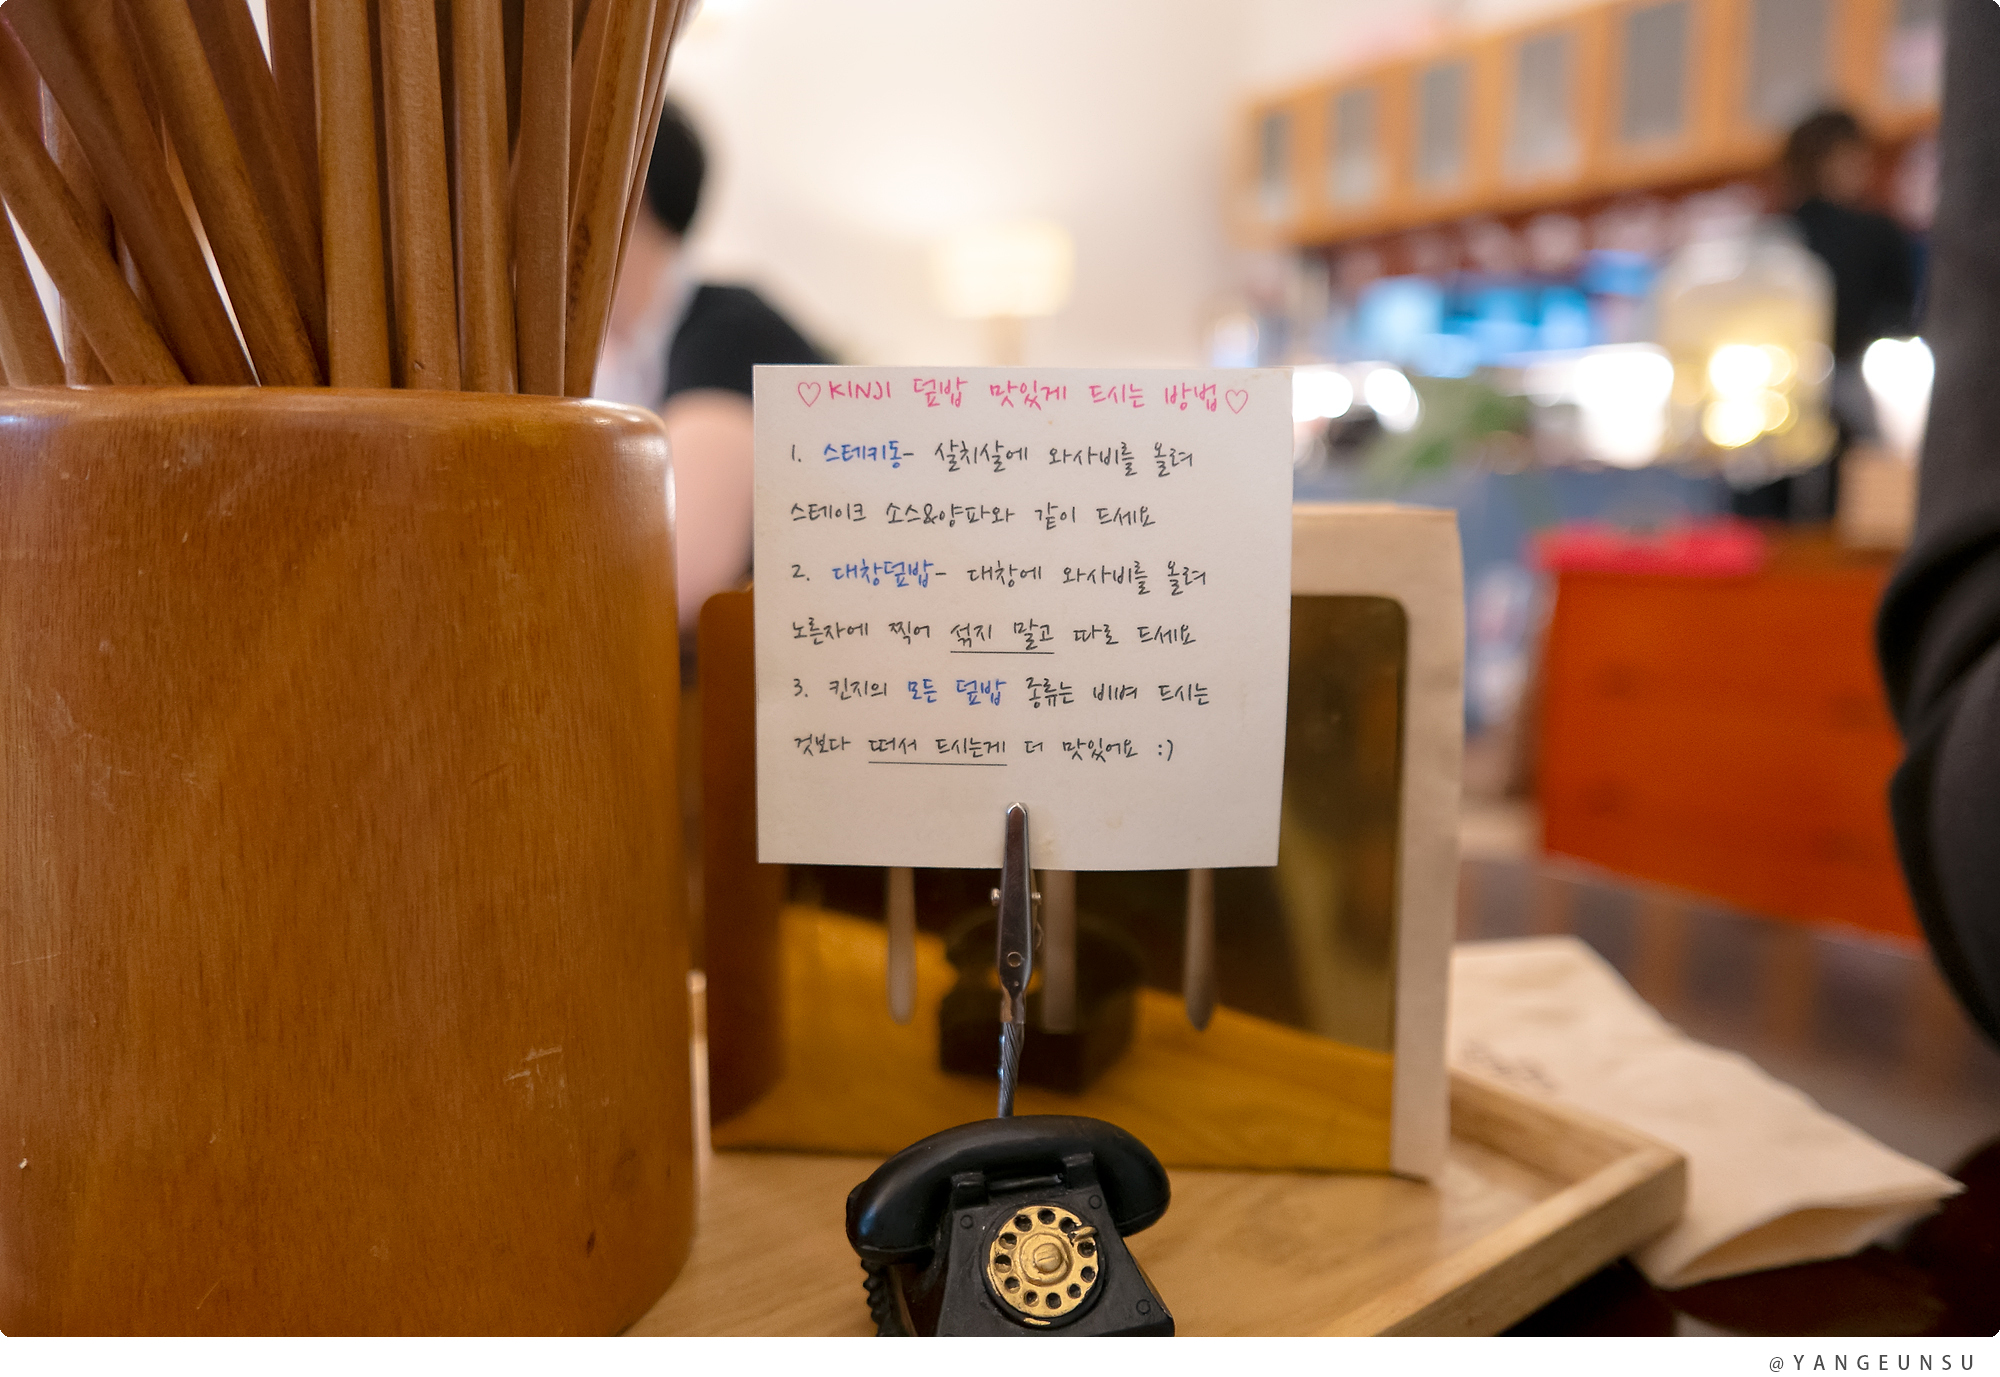 ♡KINJI 덮밥 맛있게 드시는 방법♡
1. 스테키동- 살치살에 와사비를 올려
스테이크 소스&양파와 같이 드세요
2. 대창덮밥- 대창에 와사비를 올려
노른자에 찍어 섞지 말고 따로 드세요
3. 킨지의 모든 덮밥 종류는 비벼 드시는
것보다 떠서 드시는게 더 맛있어요 :)
@YANGEUNSU